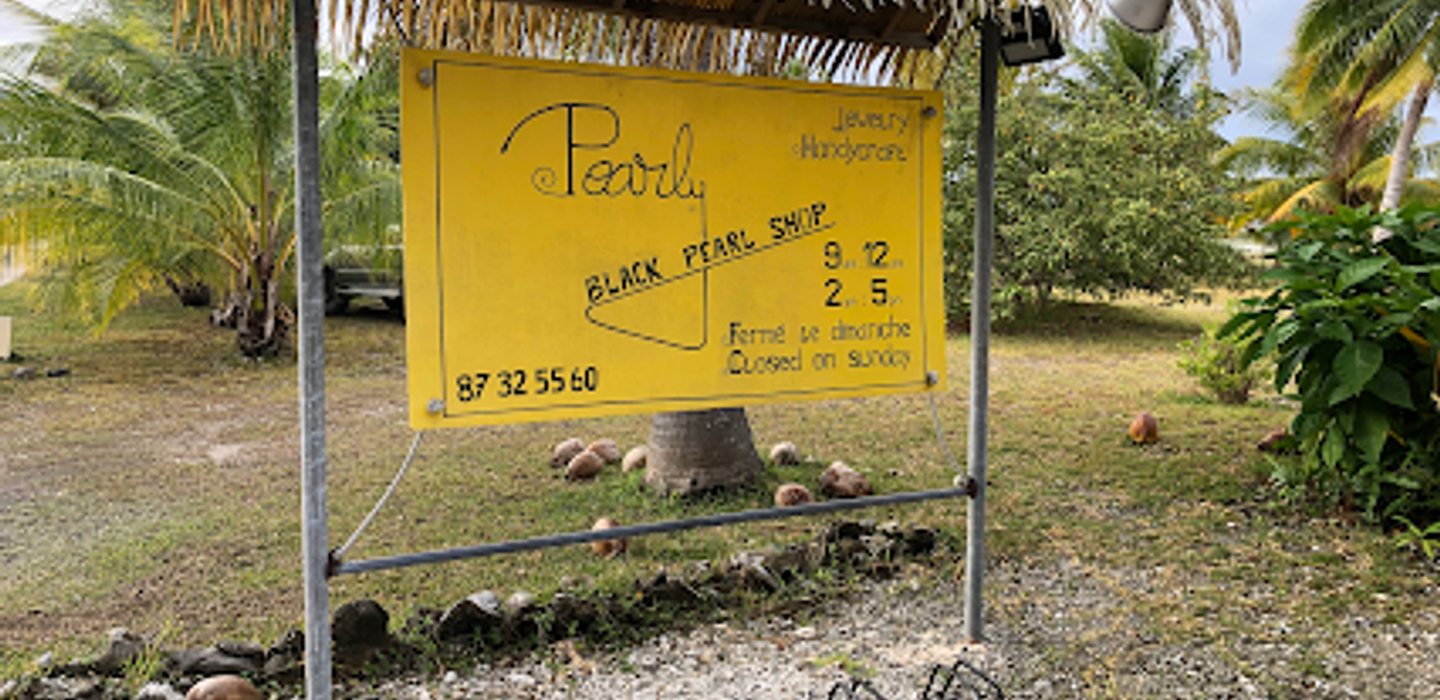 Pearly
Jewelry
Handycraft
BLACK PEARL SHOP
9am 12am
2pm 5pm
Fermé le dimanche
Closed on sunday
87 32 55 60